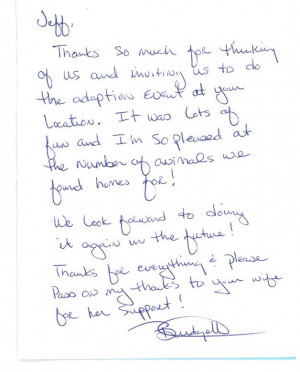 Jeff,
Thanks so much for thinking
of us and inviting us to do
the adaption event at your
location. It was lots of
fun and I'm so pleased at
the number of animals we
found homes for!
We look forward to doing
it again in the future!
Thanks for everything & please
Pass on my thanks to your wife
for her support!